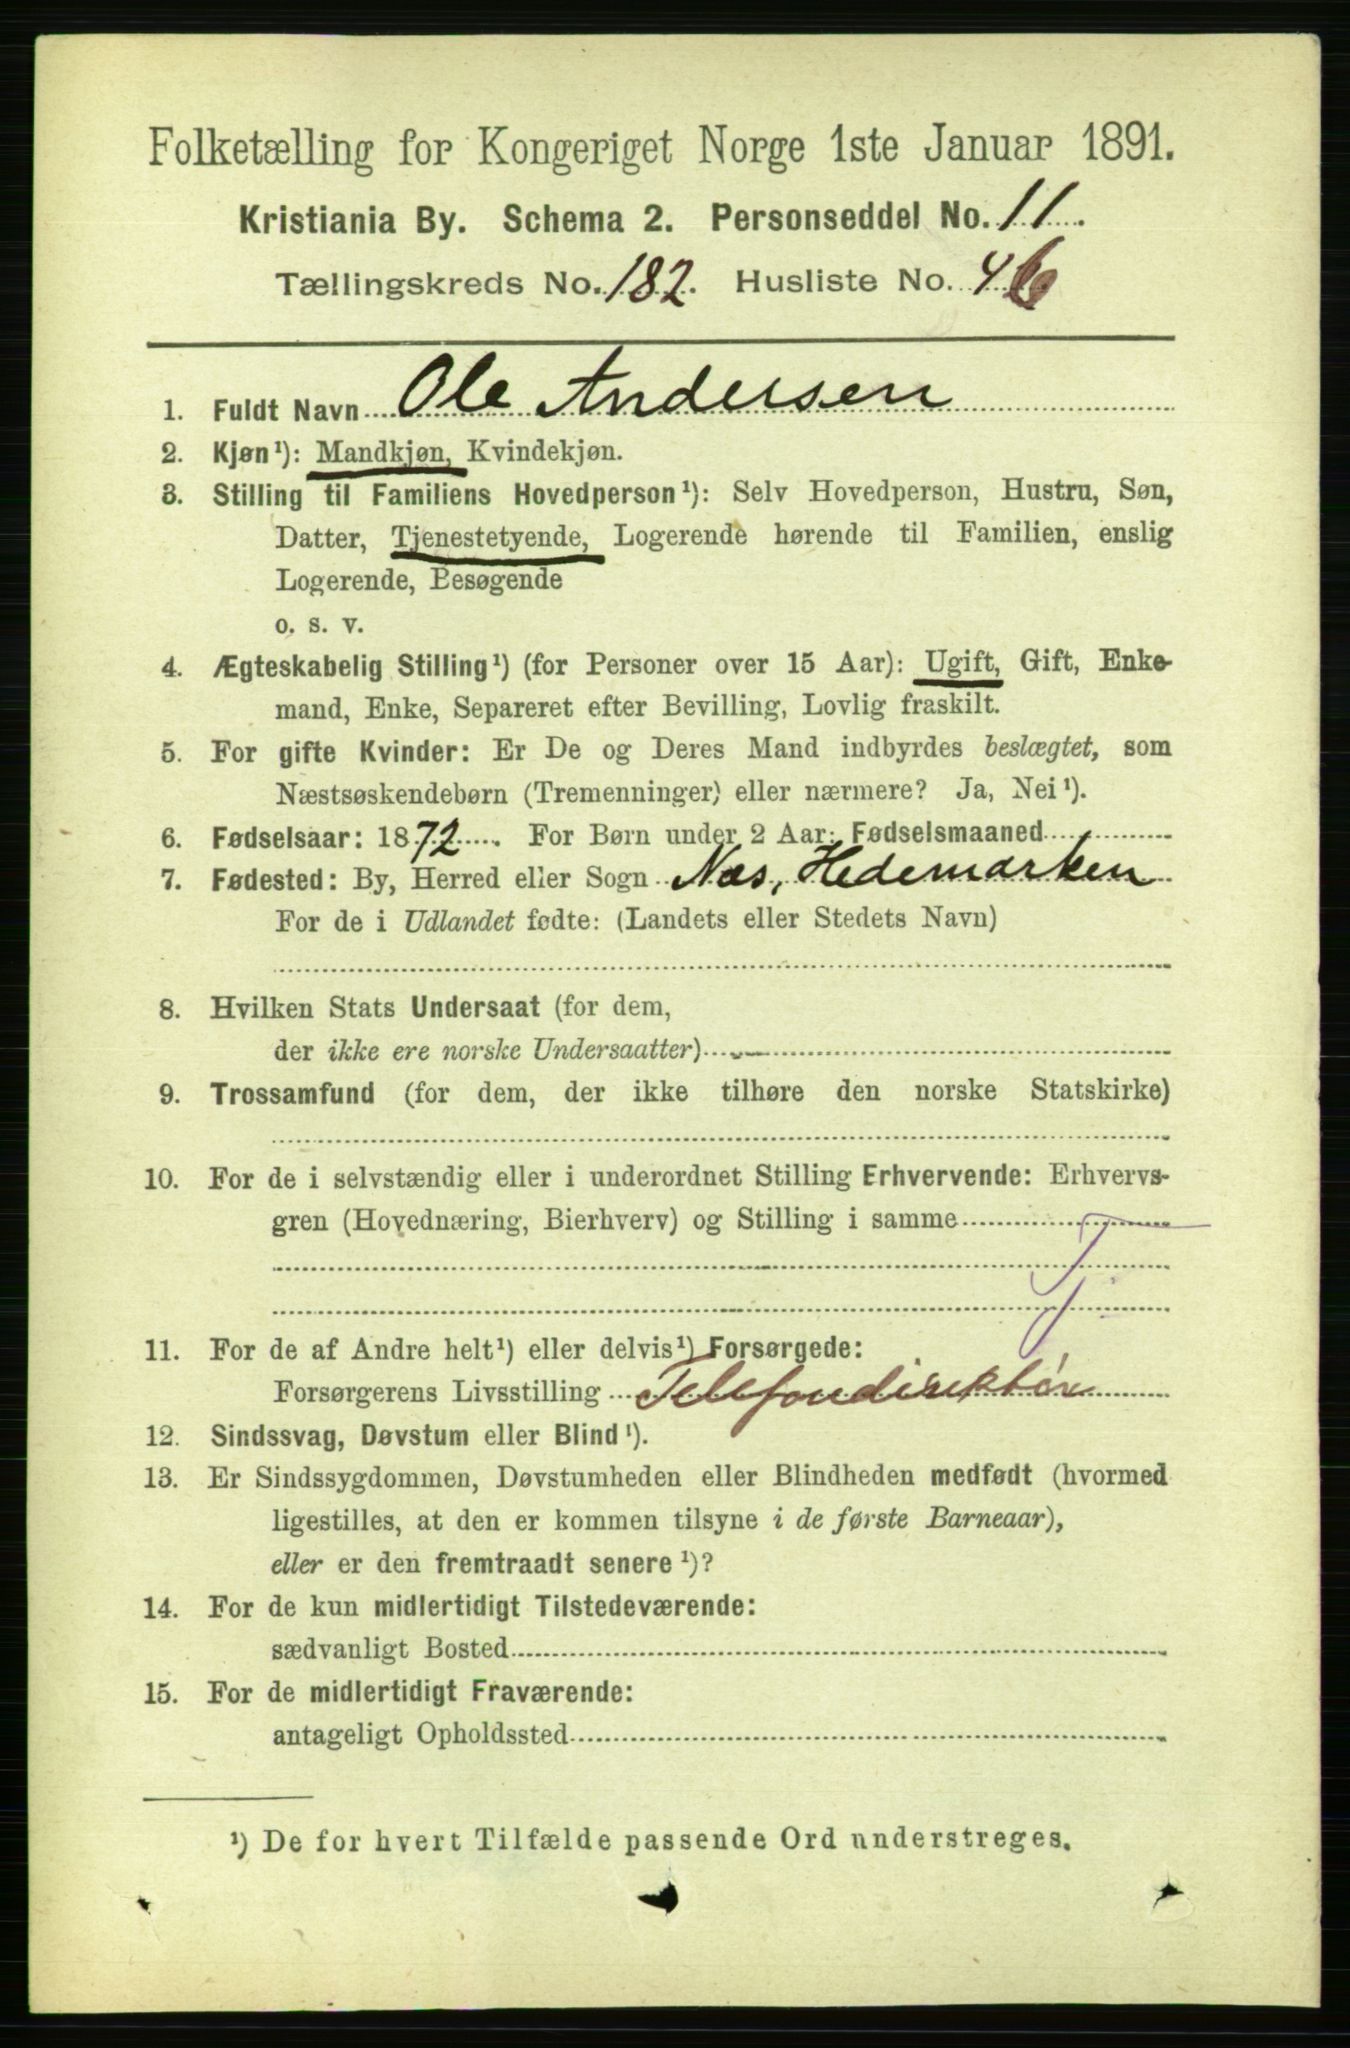 Folketælling for Kongeriget Norge 1ste Januar 1891.
Kristiania By. Schema 2. Personseddel No. 11.
Tællingskreds No. 182. Husliste No. 46
1. Fuldt Navn Ole Andersen
2. Kjøn¹): Mandkjøn, Kvindekjøn.
3. Stilling til Familiens Hovedperson¹): Selv Hovedperson, Hustru, Søn,
Datter, Tjenestetyende, Logerende hørende til Familien, enslig
Logerende, Besøgende
o. s. v.
4. Ægteskabelig Stilling¹) (for Personer over 15 Aar): Ugift, Gift, Enke-
mand, Enke, Separeret efter Bevilling, Lovlig fraskilt.
5. For gifte Kvinder: Er De og Deres Mand indbyrdes beslægtet, som
Næstsøskendebørn (Tremenninger) eller nærmere? Ja, Nei¹).
6. Fødselsaar: 1872. For Børn under 2 Aar: Fødselsmaaned
7. Fødested: By, Herred eller Sogn Næs, Hedemarken
For de i Udlandet fødte: (Landets eller Stedets Navn)
8. Hvilken Stats Undersaat (for dem,
der ikke ere norske Undersaatter)
9. Trossamfund (for dem, der ikke tilhøre den norske Statskirke)
10. For de i selvstændig eller i underordnet Stilling Erhvervende: Erhvervs-
gren (Hovednæring, Bierhverv) og Stilling i samme
Tj
11. For de af Andre helt¹) eller delvis¹) Forsørgede:
Forsørgerens Livsstilling Telefondirektør
12. Sindssvag, Døvstum eller Blind¹).
13. Er Sindssygdommen, Døvstumheden eller Blindheden medfødt (hvormed
ligestilles, at den er kommen tilsyne i de første Barneaar),
eller er den fremtraadt senere¹)?
14. For de kun midlertidigt Tilstedeværende:
sædvanligt Bosted
15. For de midlertidigt Fraværende:
antageligt Opholdssted
¹) De for hvert Tilfælde passende Ord understreges.